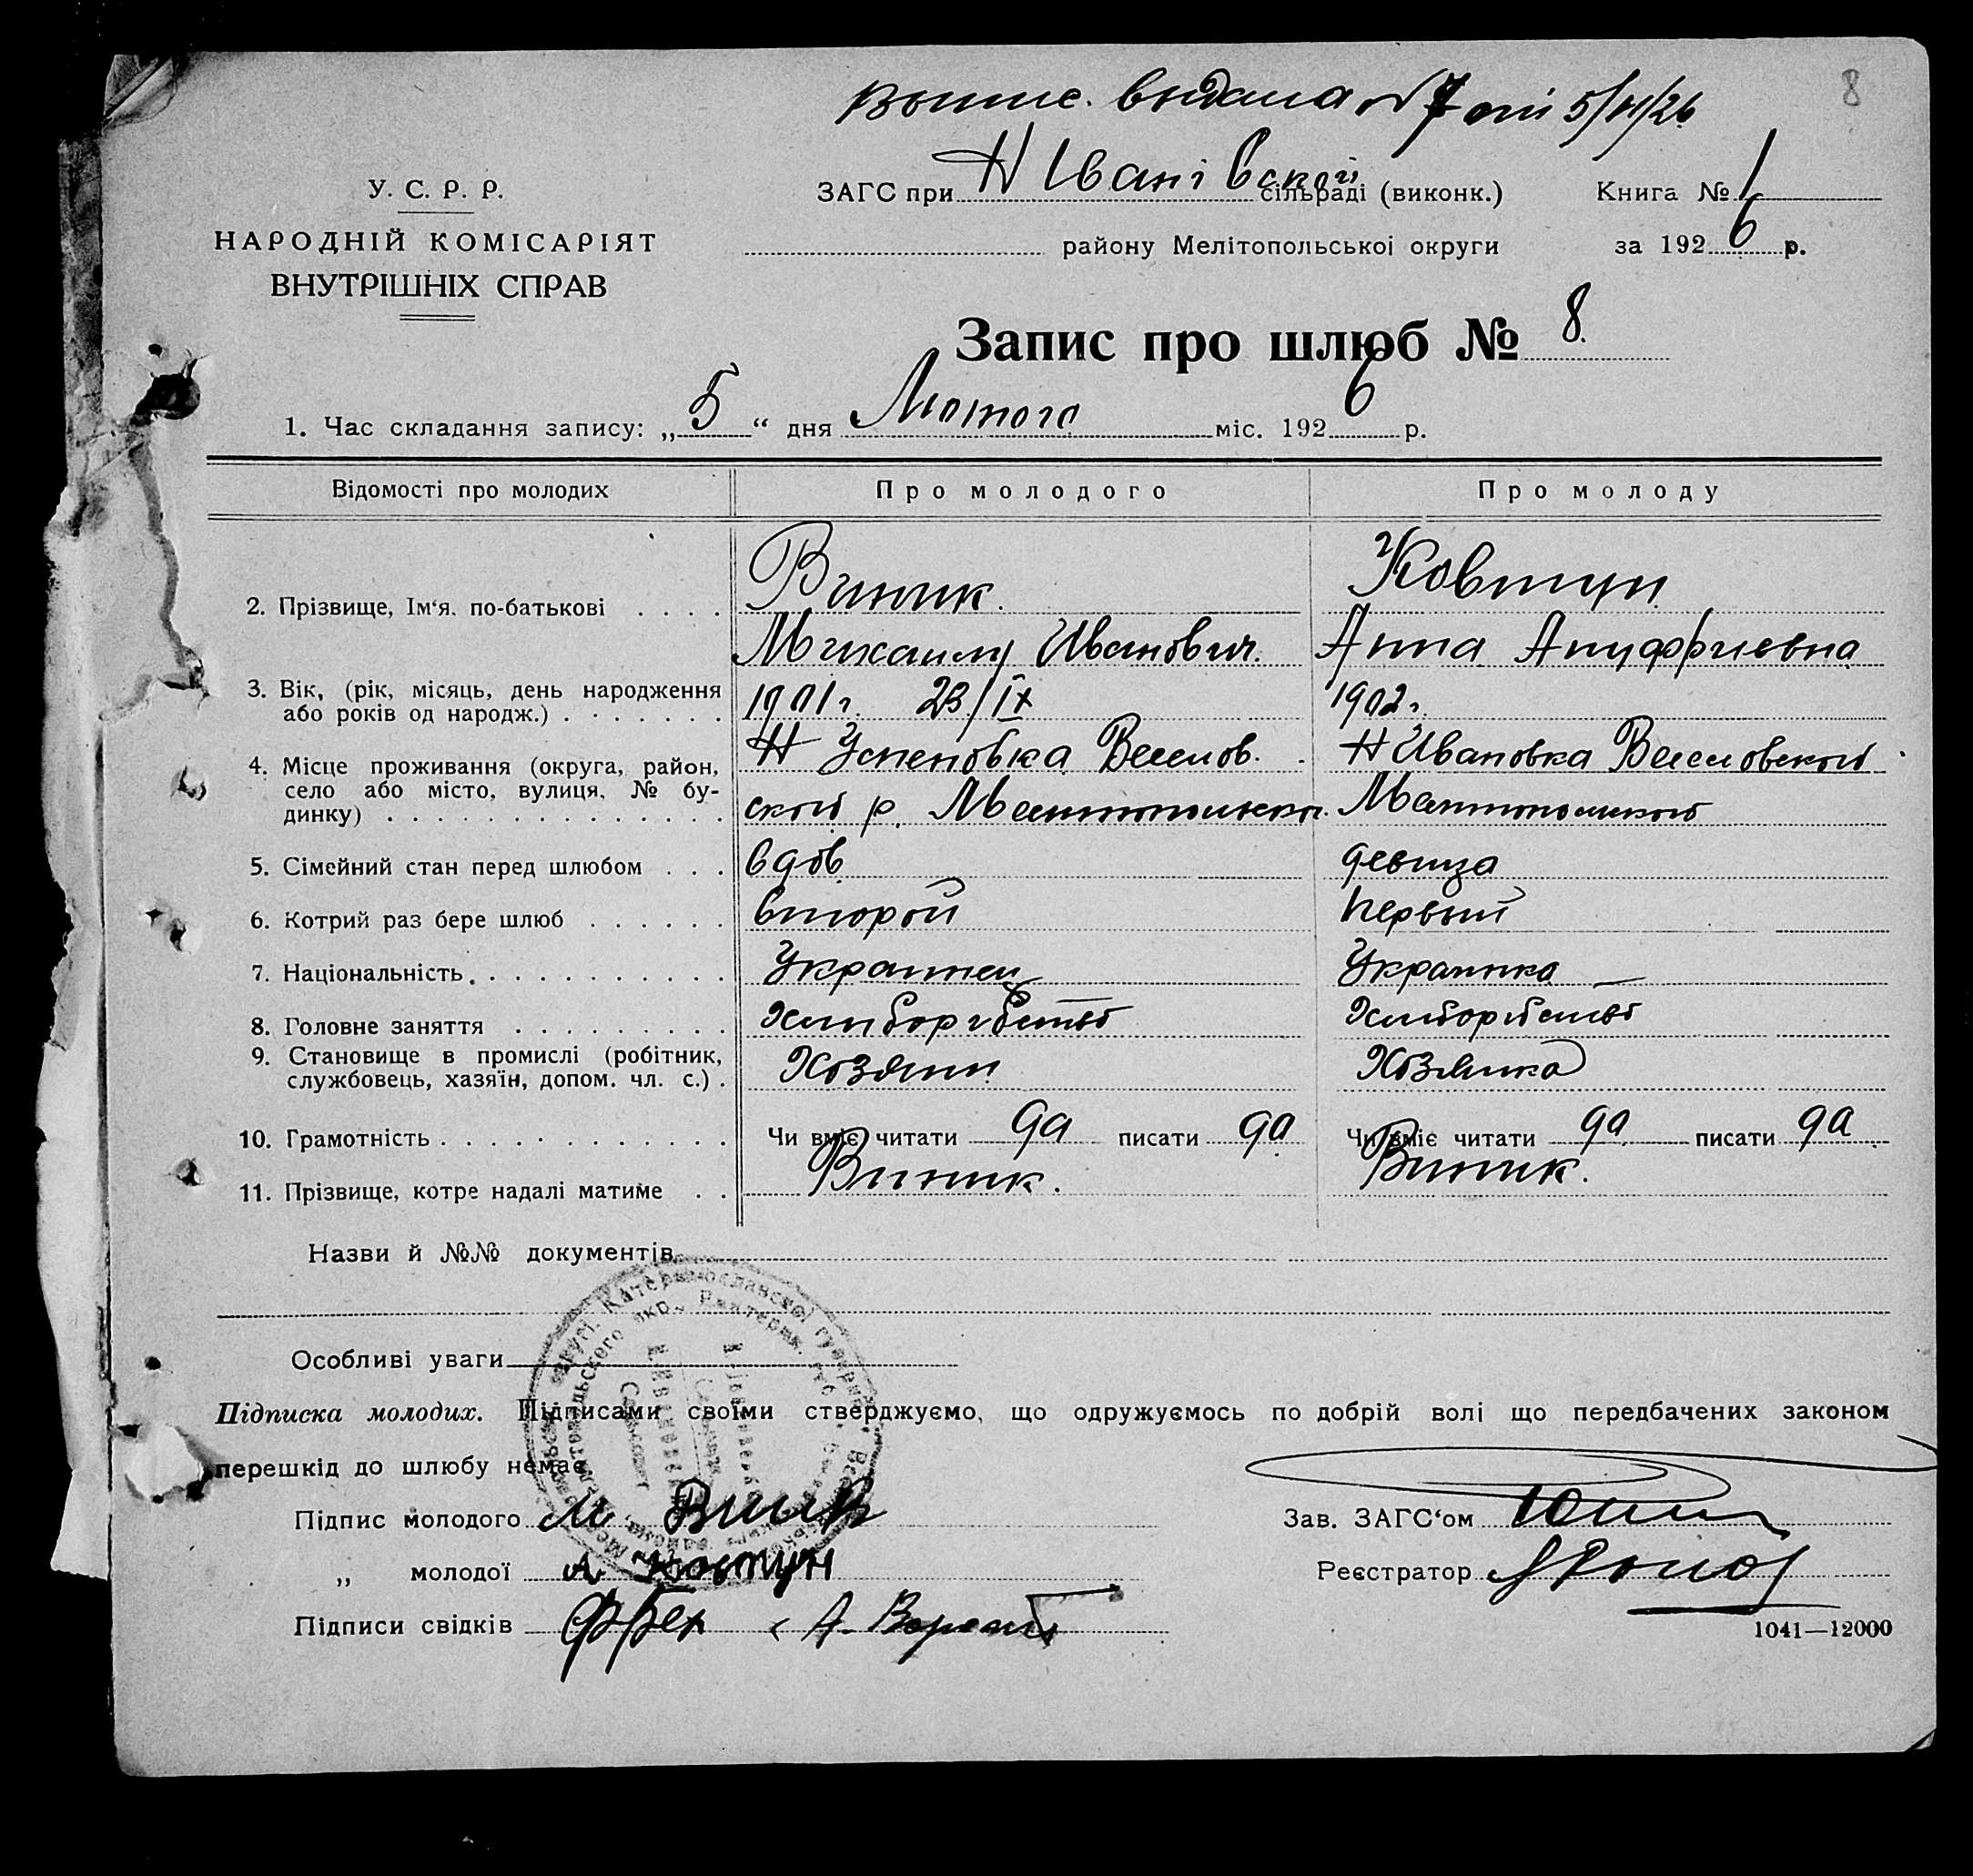 8
выпис. выдана № 7 от 5/II/26
У. С. Р. Р.
НАРОДНІЙ КОМІСАРІЯТ
ВНУТРІШНІХ СПРАВ
ЗАГС при Н Іванівской сільраді (виконк.) Книга № 1
району Мелітопольської округи за 1926 р.
Запис про шлюб № 8.
1. Час складання запису: „5“ дня Лютого міс. 1926 р.
Відомості про молодих Про молодого Про молоду
2. Прізвище, Ім‘я. по-батькові Виник. Ковтун
Михаилу Иванович. Анна Ануфриевна
3. Вік, (рік, місяць, день народження або років од народж.) 1901 г. 23/IX 1902 г.
4. Місце проживання (округа, район, село або місто, вулиця, № будинку) Н Успеновка Веселов. Н Ивановка Веселовской
ской р. Мелитопольск. Мелитопольской
5. Сімейний стан перед шлюбом вдов девица
6. Котрий раз бере шлюб второй первый
7. Національність Украинец Украинка
8. Головне заняття
9. Становище в промислі (робітник, службовець, хазяїн, допом. чл. с.) Хозяин Хозяйка
10. Грамотність Чи вміє читати да писати да Чи вміє читати да писати да
11. Прізвище, котре надалі матиме Виник. Виник.
Назви й №№ документів
Особливі уваги
Підписка молодих. Підписами своїми стверджуємо, що одружуємось по добрій волі що передбачених законом
перешкід до шлюбу немає
Підпис молодого М Виник Зав. ЗАГС‘ом
„ молодої А Ковтун Реєстратор
Підписи свідків
1041—12000